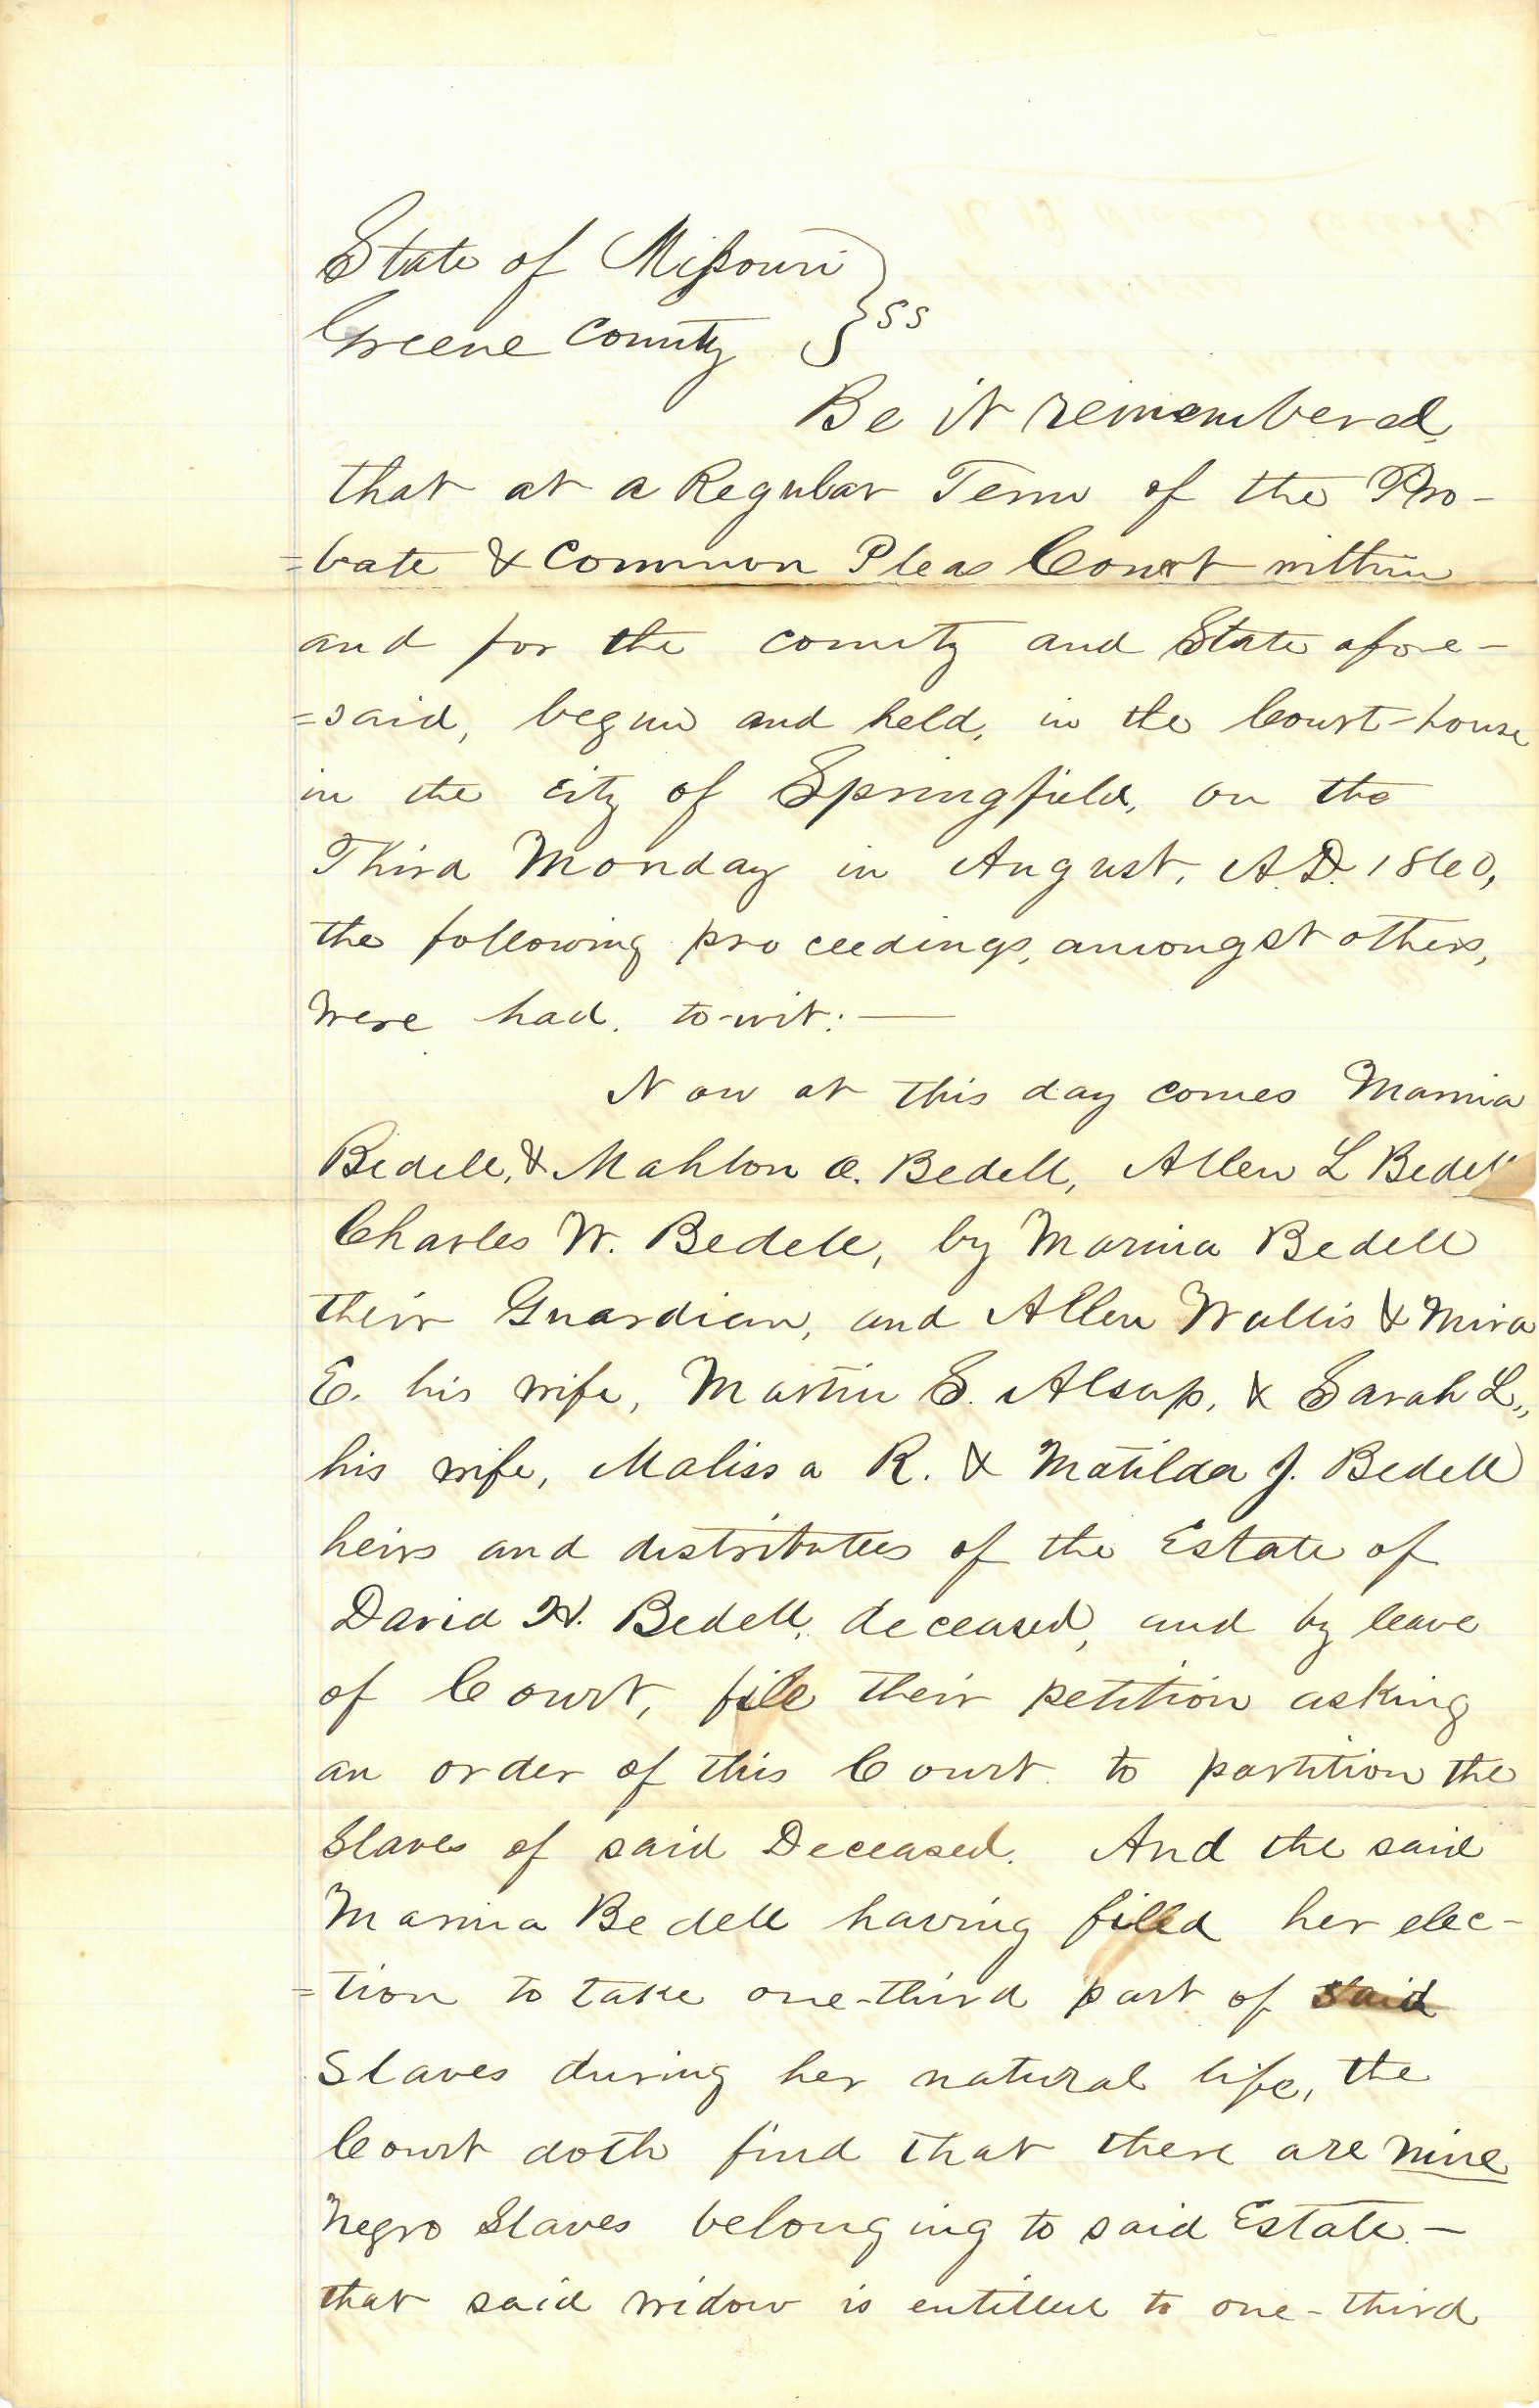 State of Missouri
Greene County } ss
Be it remembered,
that at a Regular Term of the Pro-
=bate & Common Pleas Court within
and for the county and State afore-
=said, begun and held, in the Court-house
in the city of Springfield, on the
Third Monday in August, A.D. 1860,
the following proceedings, amongst others,
were had, to-wit: —
Now at this day comes Marina
Bedell, & Mahlon O. Bedell, Allen L Bedell
Charles W. Bedell, by Marina Bedell
their Guardian, and Allen Wallis & Mira
E. his wife, Martin S. Alsup, & Sarah L.,
his wife, Malissa R. & Matilda J. Bedell
heirs and distributees of the Estate of
David H. Bedell, deceased, and by leave
of Court, file their petition asking
an order of this Court to partition the
Slaves of said Deceased. And the said
Marina Bedell having filed her elec-
=tion to take one-third part of said
Slaves during her natural life, the
Court doth find that there are nine
Negro Slaves belonging to said Estate. —
that said widow is entitled to one-third